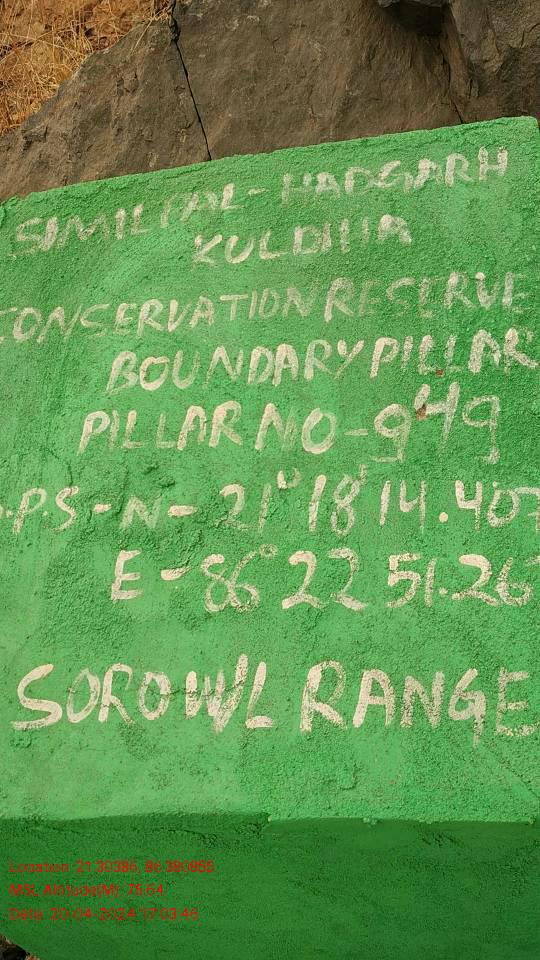 SIMILPAL-HADGARH
KULDIHA
CONSERVATION RESERVE
BOUNDARY PILLAR
PILLAR NO-949
.P.S-N-21° 18' 14.407
E-86° 22 51.267
SOROWL RANGE
Location: 21.30386, 86.380855
MSL Altitude(M): 75.64
Date: 20-04-2024 17:03:46